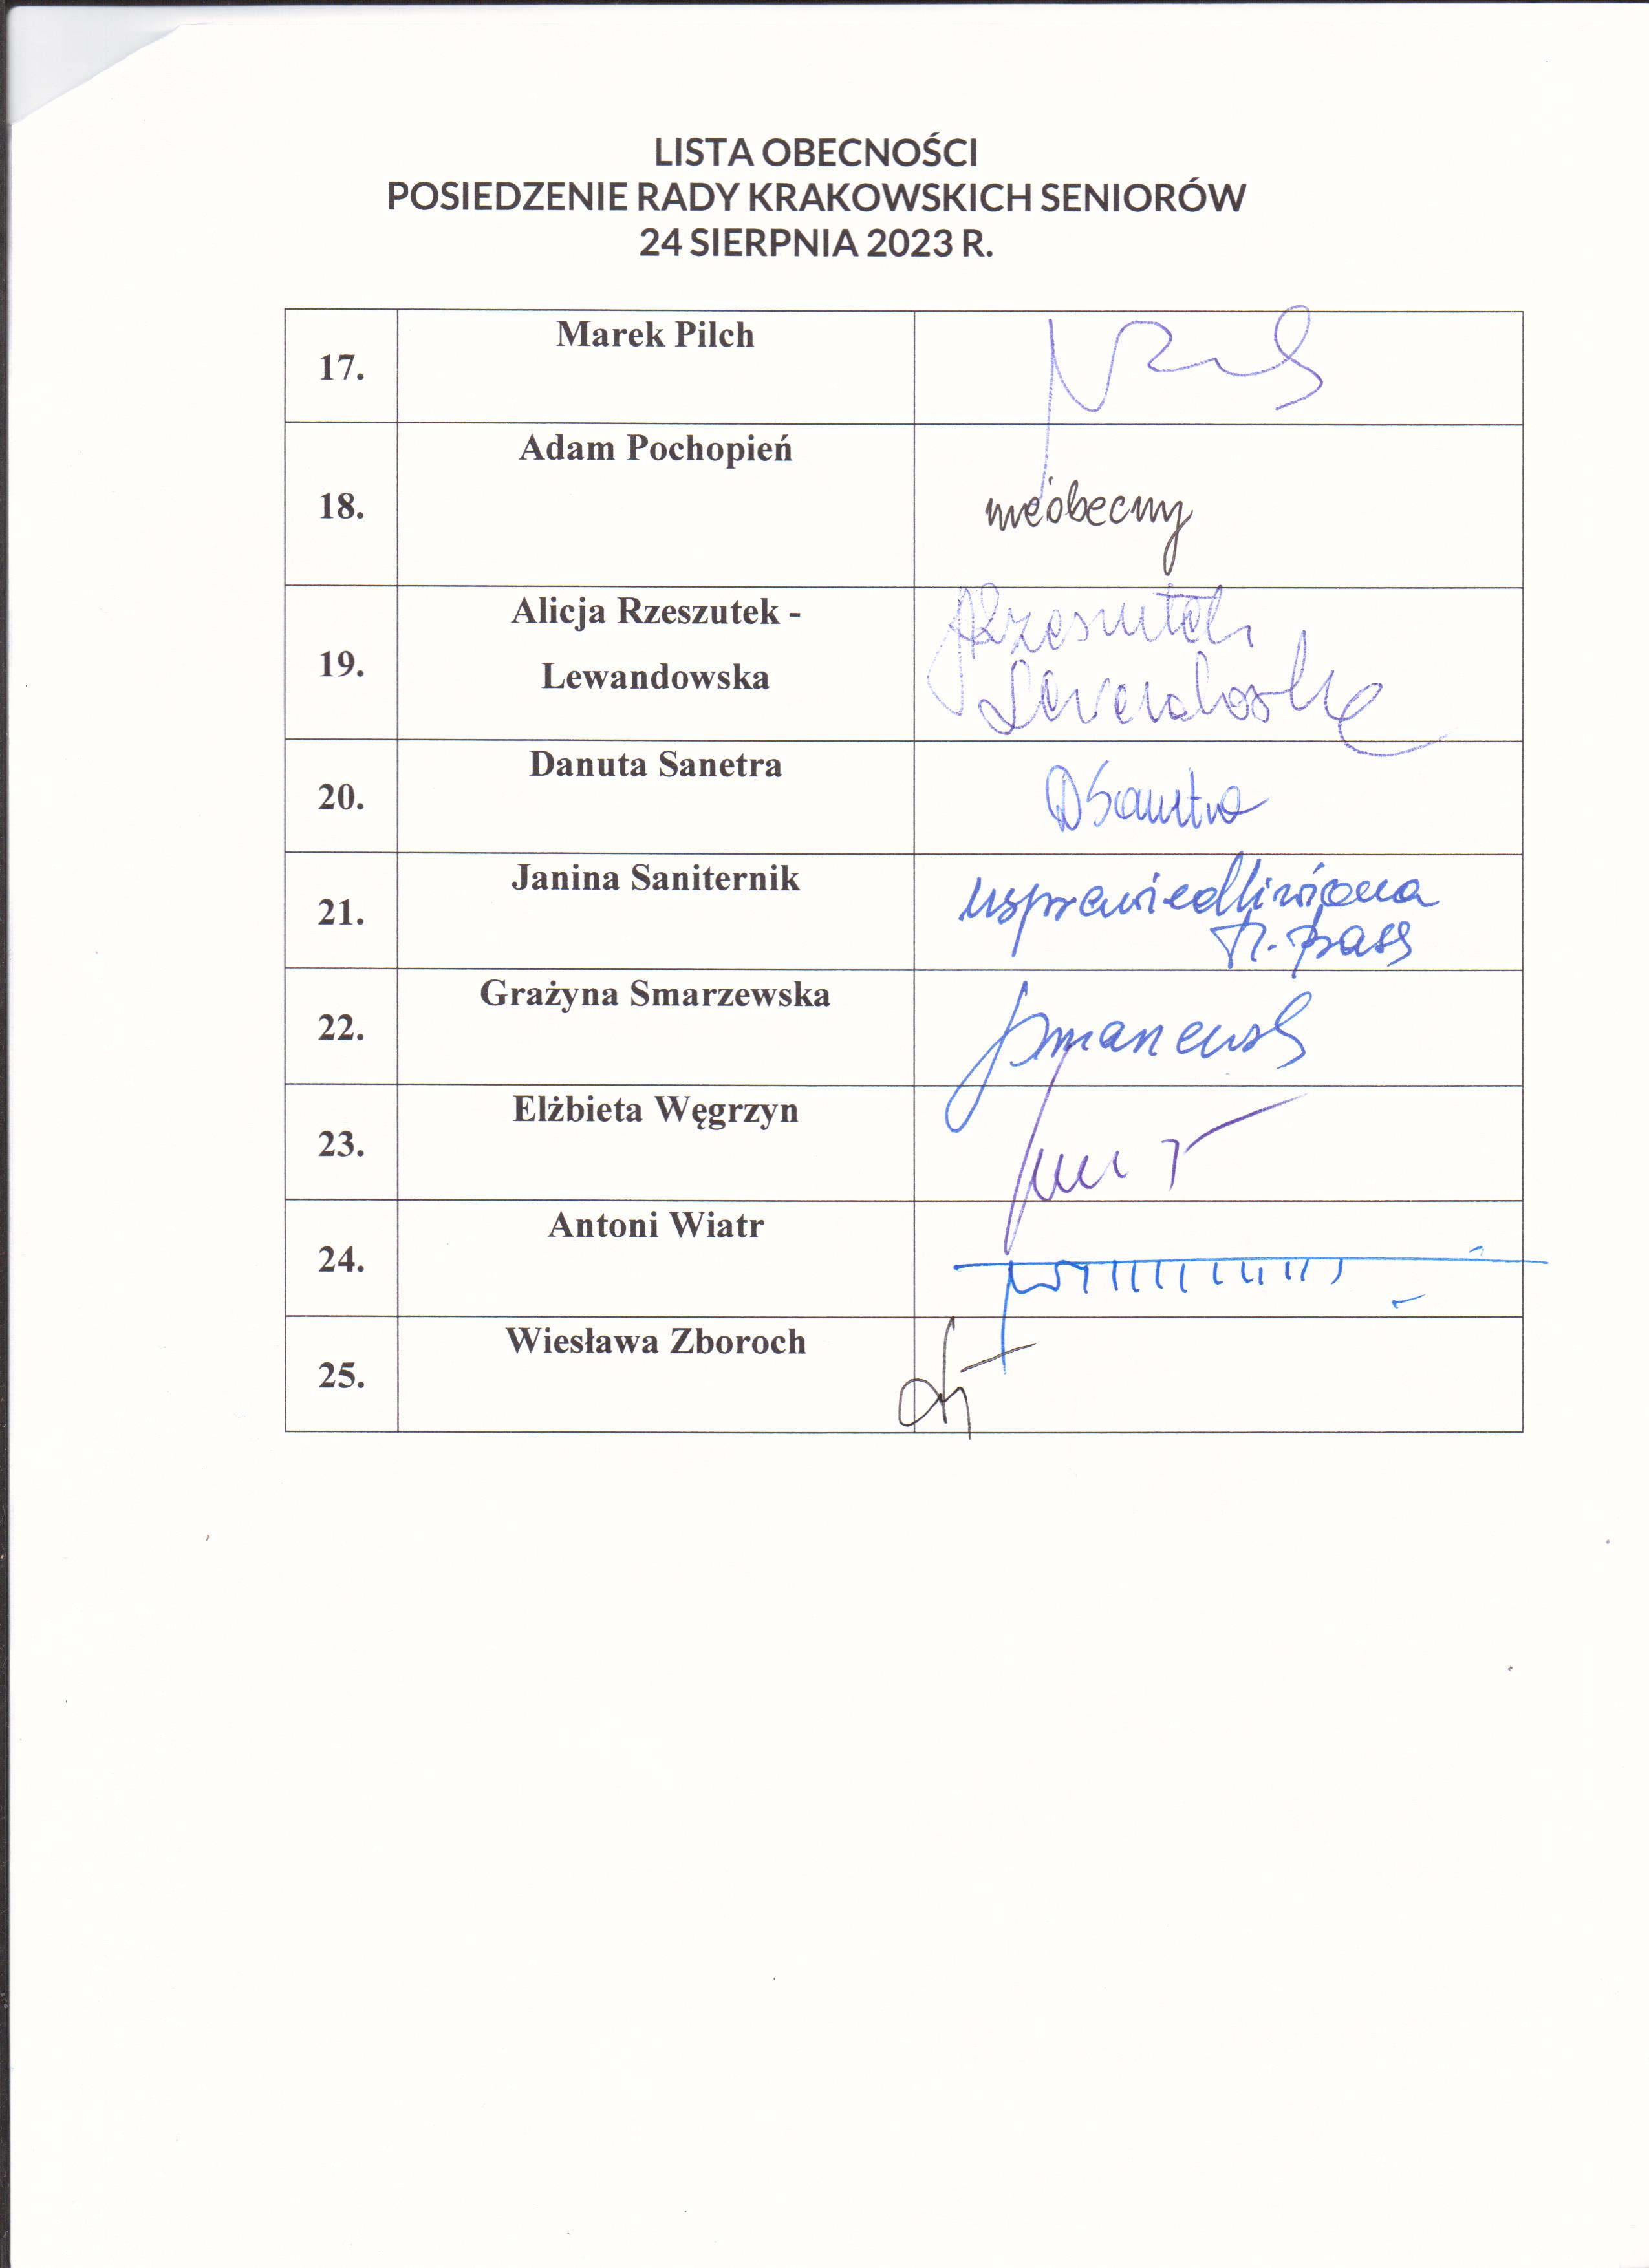 LISTA OBECNOŚCI
POSIEDZENIE RADY KRAKOWSKICH SENIORÓW
24 SIERPNIA 2023 R.
17. Marek Pilch
18. Adam Pochopień nieobecny
19. Alicja Rzeszutek - ARzeszutek
Lewandowska Lewandowska
20. Danuta Sanetra DSanetra
21. Janina Saniternik usprawiedliwiona
22. Grażyna Smarzewska
23. Elżbieta Węgrzyn
24. Antoni Wiatr
25. Wiesława Zboroch